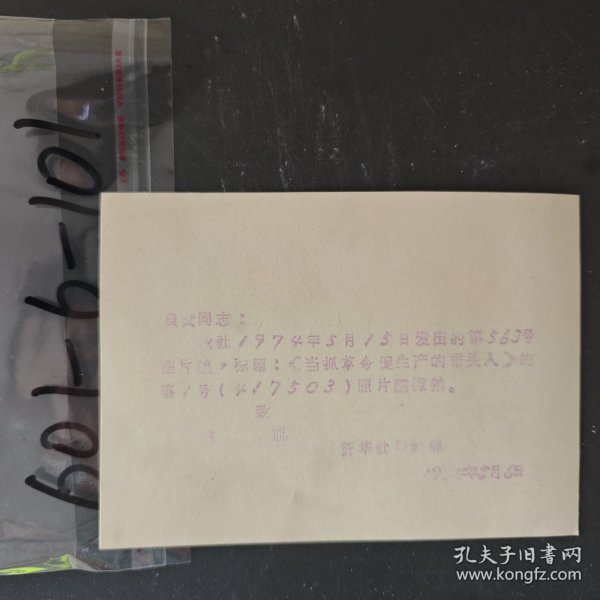 601-6-101
负责同志：
社1974年5月15日发出的第563号
图片稿，标题：《当抓革命促生产的带头人》的
第1号(417503)照片请撤销。
敬
礼
新华社
年9月6日
孔夫子旧书网
www.kongfz.com